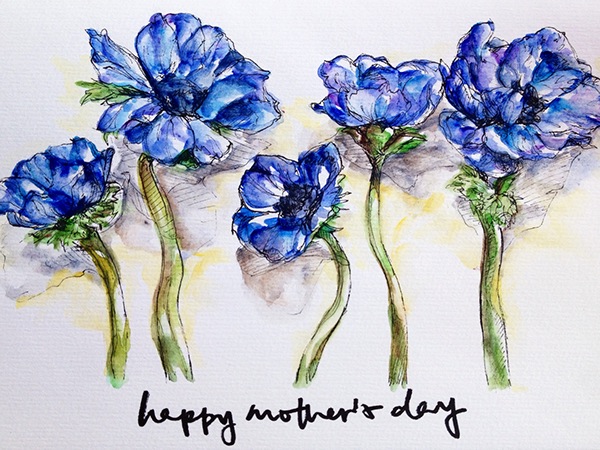 happy mother's day